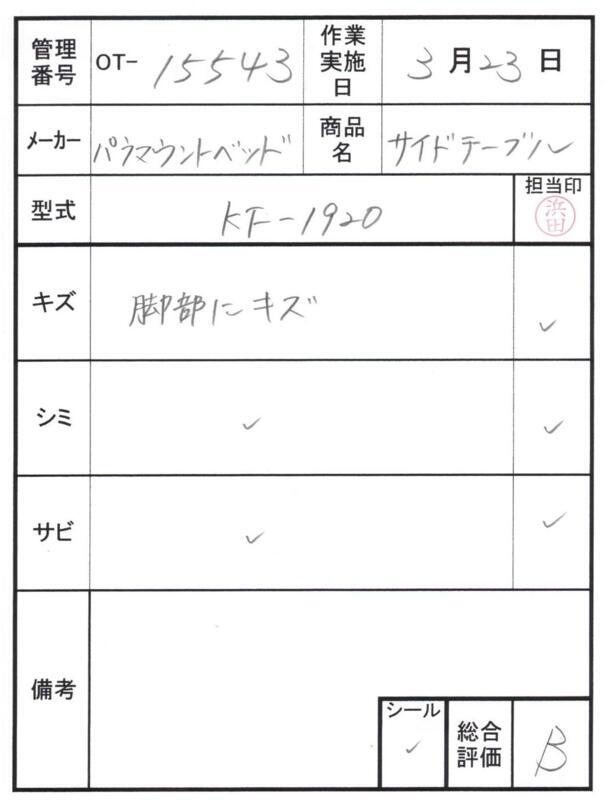 管理番号 OT- 15543 作業実施日 3月23日
メーカー パラマウントベッド 商品名 サイドテーブル
型式 KF-1920 担当印 浜田
キズ 脚部にキズ ✓
シミ ✓ ✓
サビ ✓ ✓
備考
シール ✓ 総合評価 B